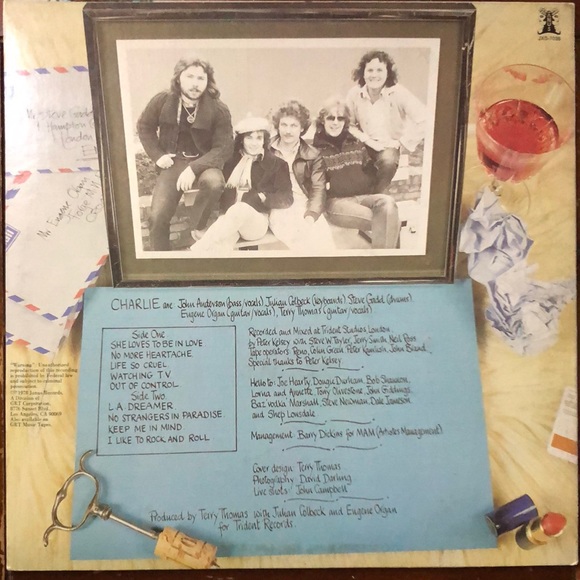 JXS-7036
Mr Steve Gadd
Hampton
London
Mr Eugene Organ
CHARLIE are John Anderson (bass/vocals), Julian Colbeck (keyboards) Steve Gadd (drums)
Eugene Organ (guitar/vocals), Terry Thomas (guitar/vocals)
Side One
SHE LOVES TO BE IN LOVE
NO MORE HEARTACHE
LIFE SO CRUEL
WATCHING T.V.
OUT OF CONTROL
Side Two
L.A. DREAMER
NO STRANGERS IN PARADISE
KEEP ME IN MIND
I LIKE TO ROCK AND ROLL
Recorded and Mixed at Trident Studios London
by Peter Kelsey with Steve W Tayler, Jerry Smith, Neil Ross
Tape operators: Reno, Colin Green, Peter Kamlish, John Brand
Special thanks to Peter Kelsey
Hello to: Joe Hearty, Dougie Durham, Bob Shannon,
Lorna and Annette, Tony Olivestone, John Giddings
Baz, Vodka, Marshall, Steve Newman, Dale Jameson
and Shep Lonsdale
Management: Barry Dickins for MAM (Artistes Management)
Cover design: Terry Thomas
Photography: David Darling
Live shots: John Campbell
Produced by Terry Thomas with Julian Colbeck and Eugene Organ
for Trident Records.
"Warning": Unauthorized
reproduction of this recording
is prohibited by Federal law
and subject to criminal
prosecution.
℗ 1978 Janus Records,
A Division of
GRT Corporation,
8776 Sunset Blvd.
Los Angeles, CA 90069
Also available on
GRT Music Tapes.